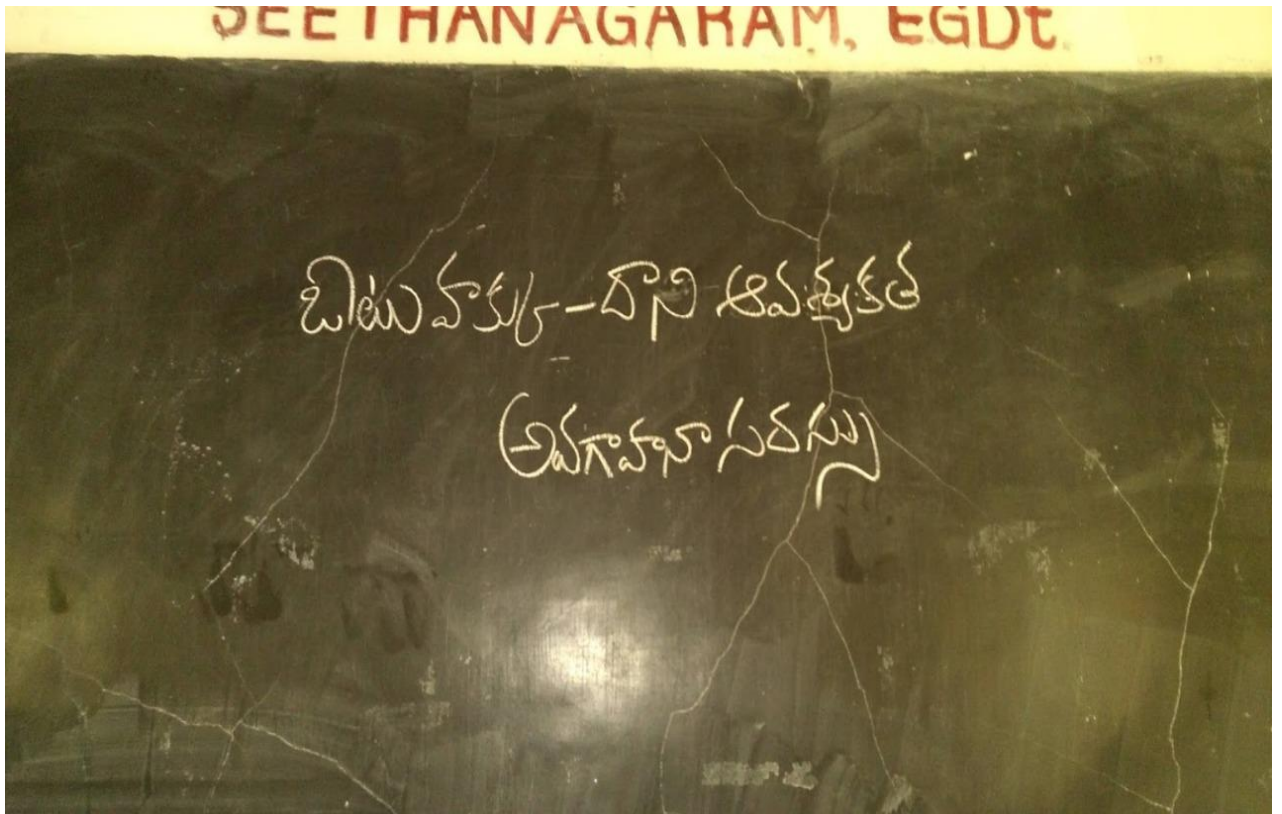 SEETHANAGARAM, EGDt
ఓటు హక్కు-దాని ఆవశ్యకత
అవగాహనా సదస్సు